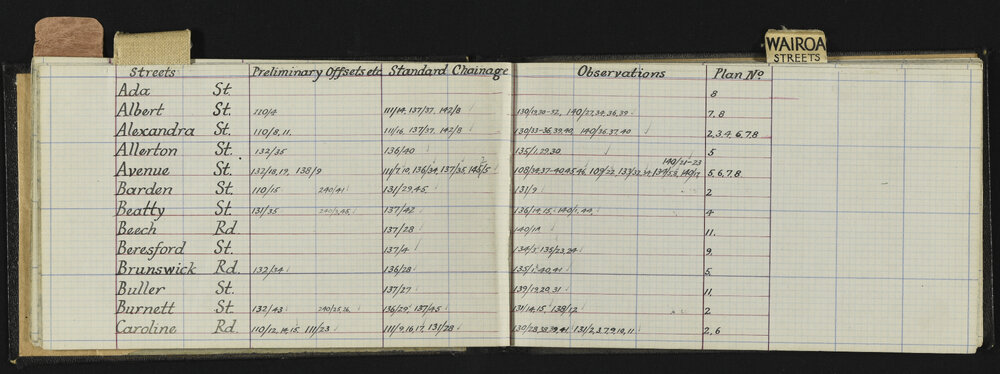 WAIROA
STREETS
Streets Preliminary Offsets etc Standard Chainage Observations Plan Nº
Ada St. 8
Albert St. 110/4 111/14, 137/37, 142/8 140/27,34,36,39 7, 8
Alexandra St. 110/8, 11. 111/16, 137/37, 142/8 130/33-36,39,40, 140/36,37,40 2,3,4, 6,7,8
Allerton St. 132/35 136/40 135/1,29,30 5
140/21-23
Avenue St. 132/18,19, 138/9 111/7,10, 136/34, 137/35, 145/5 5,6,7,8
Barden St. 110/15 240/41 131/29,45 131/9 2
Beatty St. 131/35 137/42 136/14,15 140/1,44 4
Beech Rd. 137/28 11.
Beresford St. 137/4 134/5 135/23,24 9.
Brunswick Rd. 132/34 136/28 135/1 40,41 5,
Buller St. 137/27 139/19,20,31 11,
Burnett St. 132/43 240/25,26 136/29 137/45 131/14,15 138/12 2
Caroline Rd. 110/12,14,15 111/23 111/9,16,17, 131/28 130/28,38,39,41 131/2,3,7,9,10,11 2,6